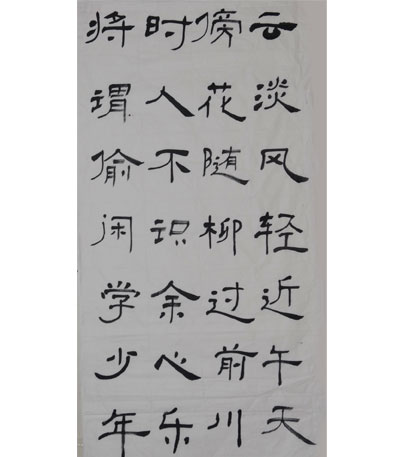 云淡风轻近午天
傍花随柳过前川
时人不识余心乐
将谓偷闲学少年